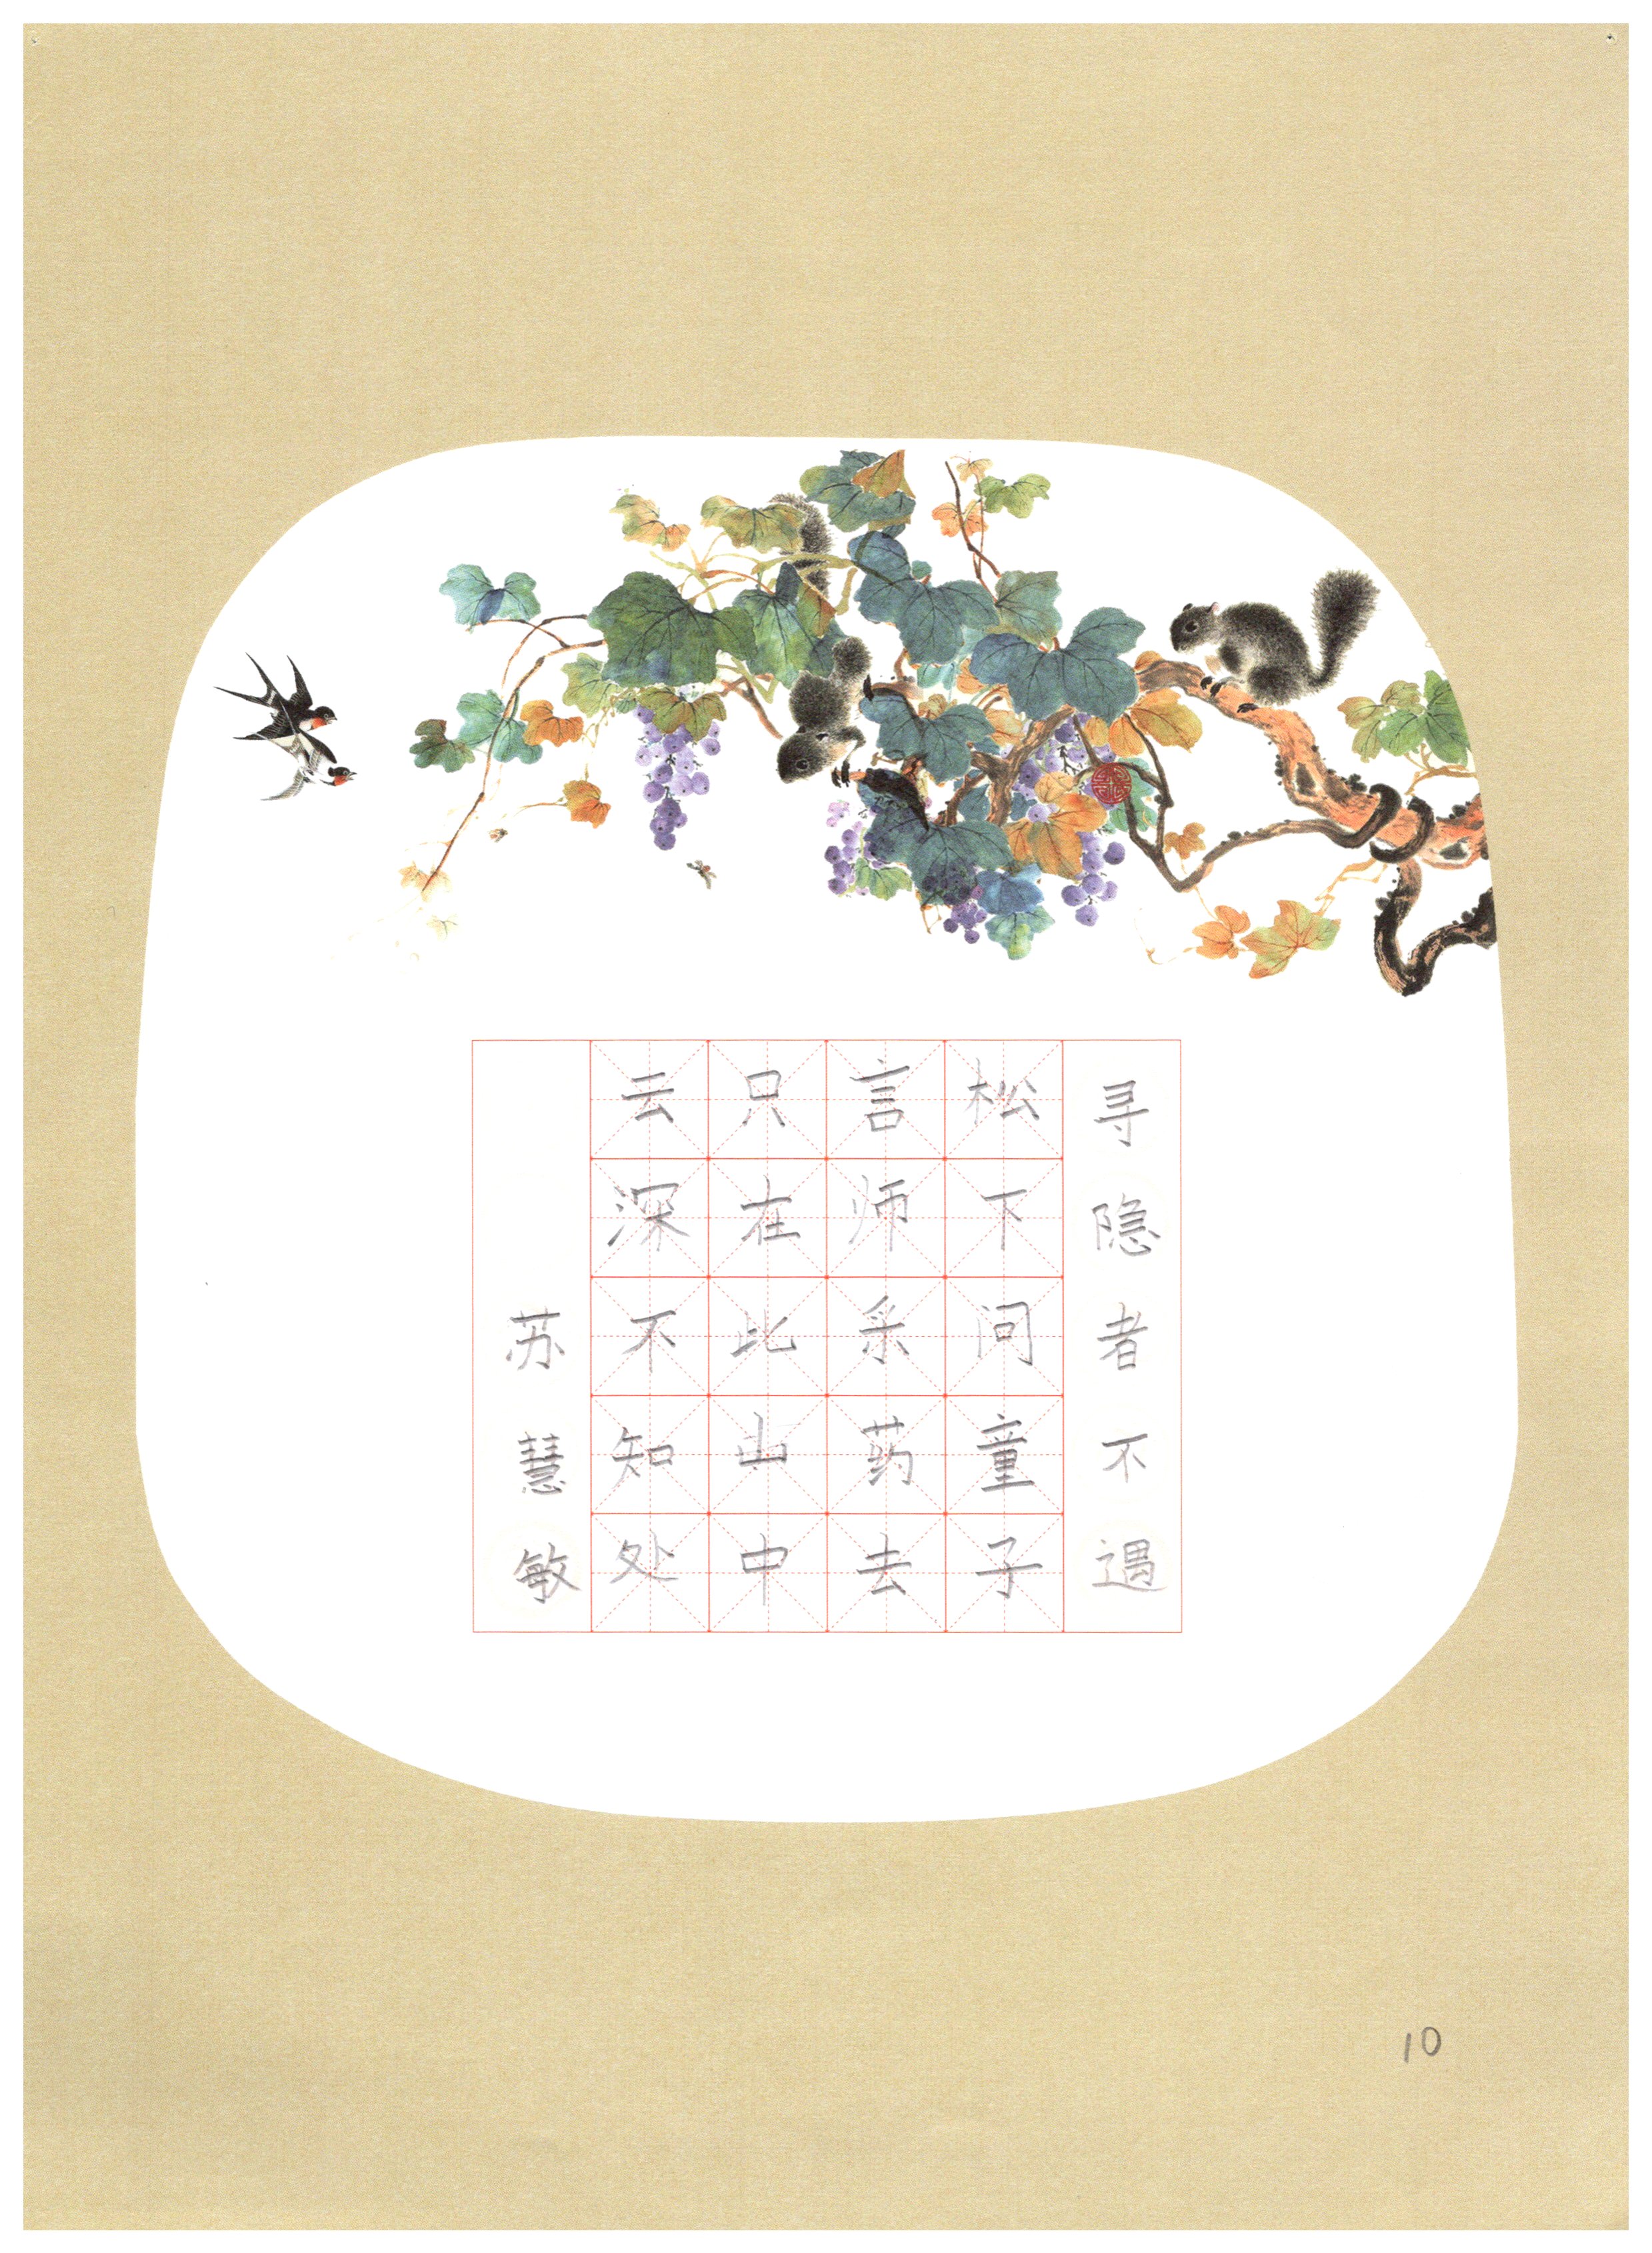 寻隐者不遇
松下问童子
言师采药去
只在此山中
云深不知处
苏慧敏
10